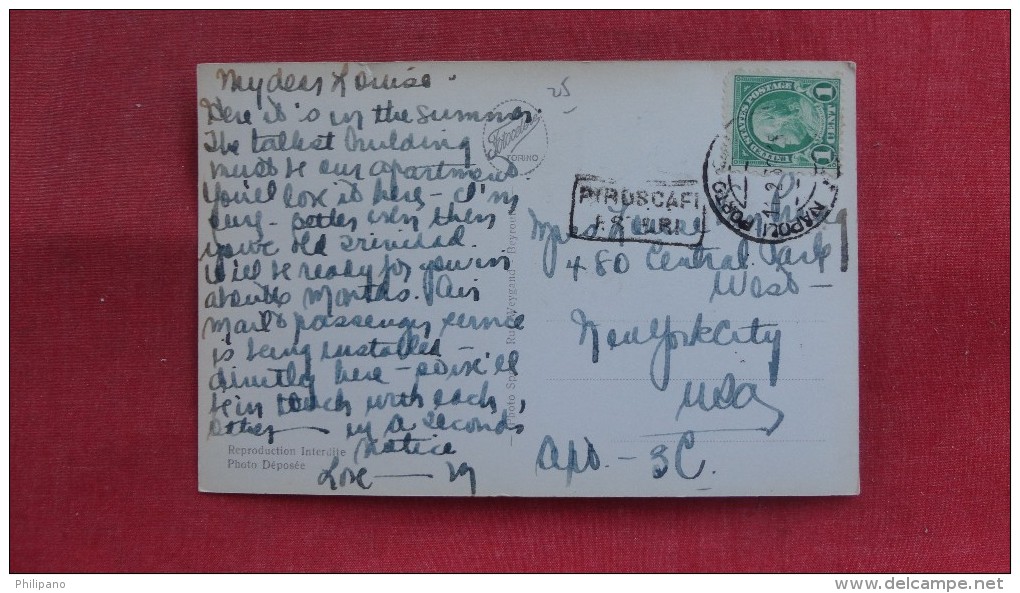 My dear Louise.
Here it is in the summer.
The tallest building
must be our apartment.
You'll love it here – I'm
sure – better even than
you've did Trinidad.
Will be ready for you in
about 6 months. Air
mail & passenger service
is being installed
directly here – so we'll
be in touch with each
other — in a seconds
notice
Love — M
Reproduction Interdite
Photo Déposée
25
Fotocelere
TORINO
Photo Sport Rue Weygand – Beyrouth
PIROSCAFI
UNITED STATES POSTAGE
1 CENT 1
NAPOLI PORTO
Miss Louise
480 Central Park
West –
New York City
USA
Apt. – 3C.
Philipano
www.delcampe.net